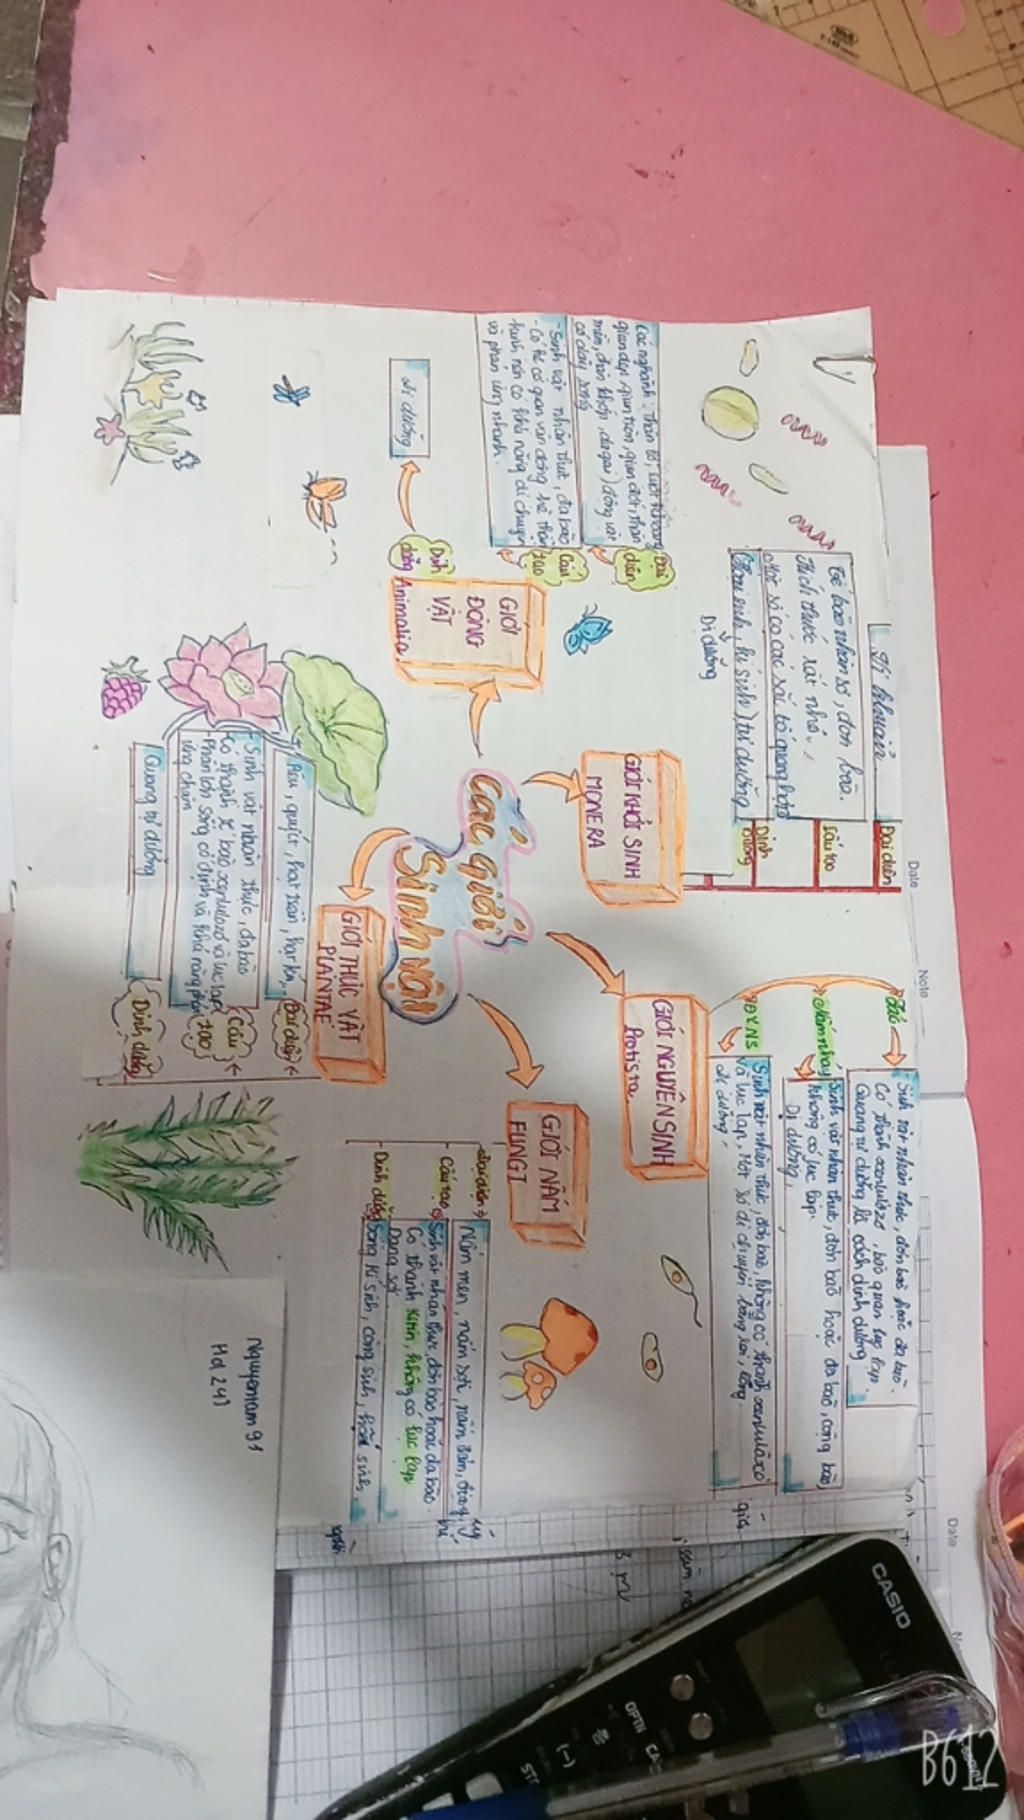 Các giới
Sinh vật
GIỚI KHỞI SINH
MONERA
Đại diện
Vi khuẩn
Cấu tạo
Tế bào nhân sơ, đơn bào.
Kích thước rất nhỏ.
Một số có các sắc tố quang hợp
Dinh dưỡng
Hoại sinh, kí sinh, tự dưỡng
Dị dưỡng
GIỚI NGUYÊN SINH
Protista
Tảo
- Sinh vật nhân thực, đơn bào hoặc đa bào.
Có thành xenlulozơ, bào quan lục lạp.
Quang tự dưỡng là cách dinh dưỡng
Nấm nhầy
Sinh vật nhân thực, đơn bào hoặc đa bào, cộng bào,
không có lục lạp.
Dị dưỡng.
ĐVNS
Sinh vật nhân thực, đơn bào, không có thành xenlulozơ
và lục lạp, Một số di chuyển bằng roi, lông.
dị dưỡng.
GIỚI NẤM
FUNGI
Đại diện
Nấm men, nấm sợi, nấm đảm,
Cấu tạo
Sinh vật nhân thực đơn bào hoặc đa bào.
Có thành kitin, không có lục lạp
Dạng sợi
Dinh dưỡng
Sống kí sinh, cộng sinh, hoại sinh.
GIỚI THỰC VẬT
PLANTAE
Đại diện
Rêu, quyết, hạt trần, hạt kín,
Cấu tạo
Sinh vật nhân thực, đa bào
Có thành tế bào xenlulozơ và lục lạp
Phần lớn sống cố định và khả năng phản
ứng chậm
Dinh dưỡng
Quang tự dưỡng
GIỚI
ĐỘNG
VẬT
Animalia
Đại diện
Các nghành: Thân lỗ, ruột khoang
giun dẹp, giun tròn, giun đốt, thân
mềm, chân khớp, da gai, động vật
có dây sống
Cấu tạo
- Sinh vật nhân thực, đa bào
- Có hệ cơ quan vận động, hệ thần
kinh nên có khả năng di chuyển
và phản ứng nhanh.
Dinh dưỡng
Dị dưỡng
Nguyentam91
Hd 241
Date
Note
Date
CASIO
OPTN
(-)
B612